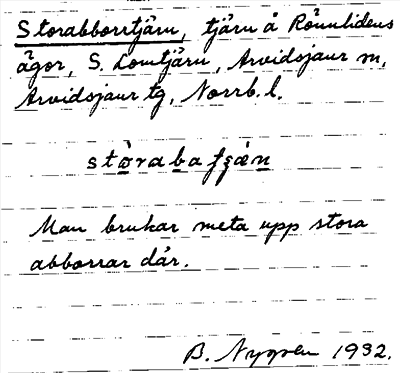 Storabborrtjärn, tjärn å Rönnlidens
ägor, S. Lomtjärn, Arvidsjaur m,
Arvidsjaur tg, Norrb. l.
Man brukar meta upp stora
abborrar där.
B. Nygren 1932.